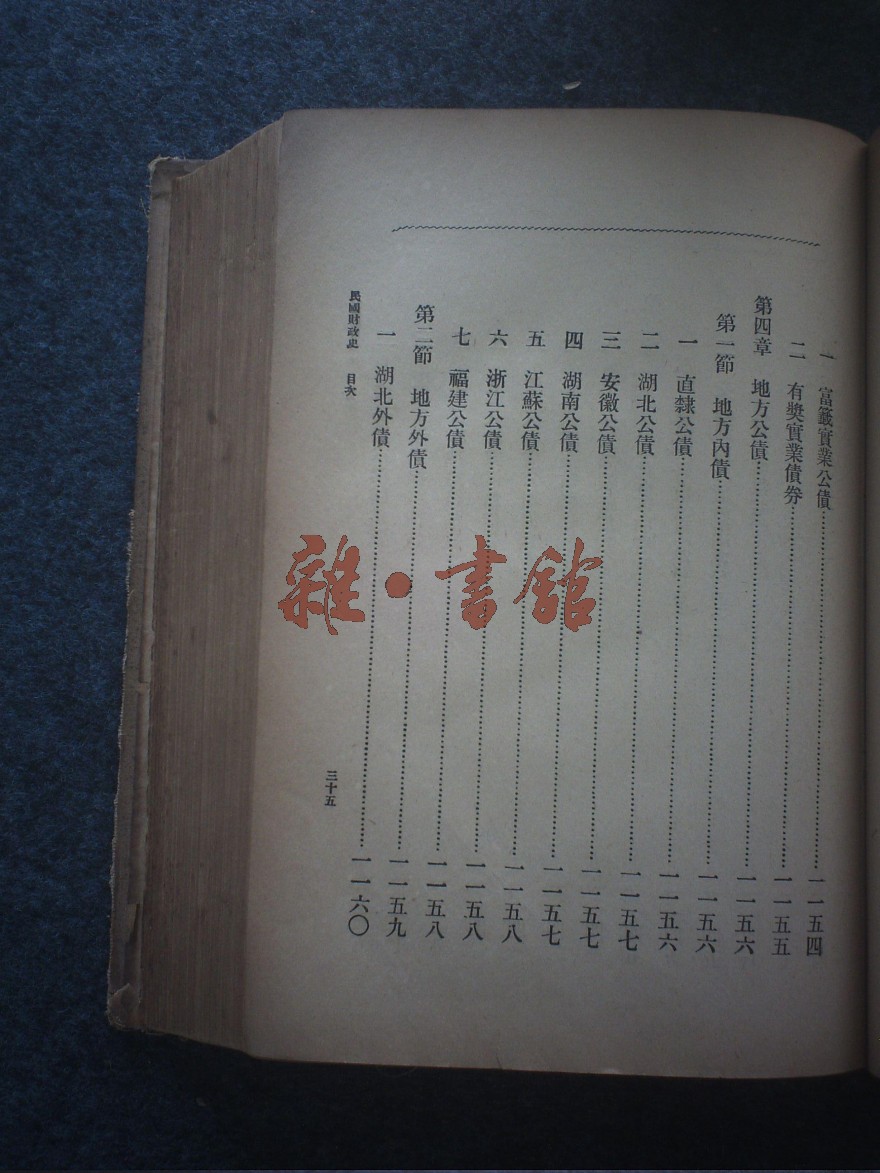 一 富籤實業公債……一一五四
二 有獎實業債券……一一五五
第四章 地方公債……一一五六
第一節 地方內債……一一五六
一 直隸公債……一一五六
二 湖北公債……一一五七
三 安徽公債……一一五七
四 湖南公債……一一五七
五 江蘇公債……一一五八
六 浙江公債……一一五八
七 福建公債……一一五八
第二節 地方外債……一一五九
一 湖北外債……一一六〇
民國財政史 目次
三十五
雜·書館